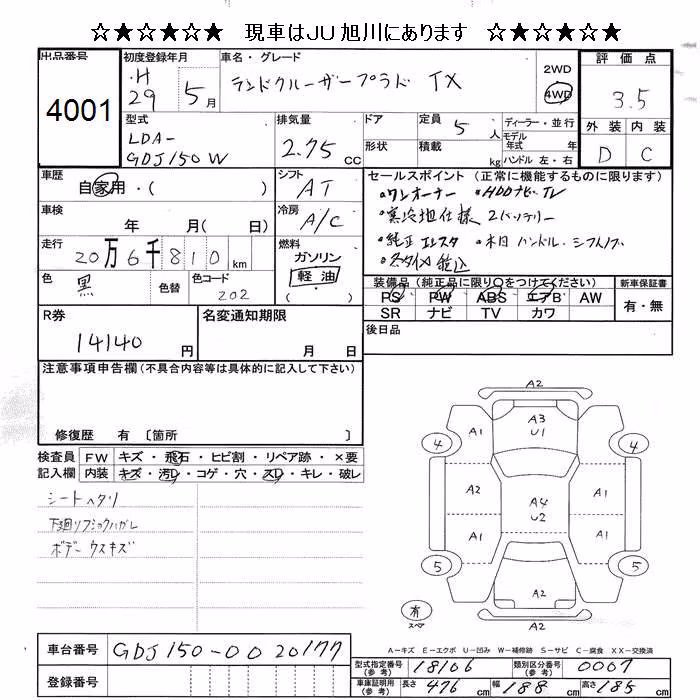 ☆★☆★☆★ 現車はJU旭川にあります ☆★☆★☆★
出品番号 初度登録年月 車名・グレード 評価点
4001 H29 5月 ランドクルーザープラド TX 2WD 4WD 3.5
型式 排気量 ドア 定員 5人 ディーラー・並行 外装 内装
LDA-GDJ150W 2.75cc 形状 積載 kg モデル年式 年 D C
ハンドル 左・右
車歴 シフト セールスポイント(正常に機能するものに限ります)
自家用・( ) AT ・ワンオーナー ・HDDナビ・TV
車検 冷房 ・寒冷地仕様 2バッテリー
年 月( 日) A/C ・純正エンスタ ・木目ハンドル・シフトノブ
走行 燃料
20万6千810km ガソリン
色 色替 色コード 軽油
黒 202 ( )
装備品(純正品に限り○をつけてください) 新車保証書
PS PW ABS エアB AW 有・無
SR ナビ TV カワ
R券 名変通知期限 後日品
14140円 月 日
注意事項申告欄(不具合内容等は具体的に記入して下さい)
修復歴 有 〔箇所 〕
検査員 FW キズ・飛石・ヒビ割・リペア跡・×要
記入欄 内装 キズ・汚レ・コゲ・穴・スレ・キレ・破レ
シートヘタリ
ボデーウスキズ
A2
A3
U1
A1 A1
4 4
A2 A4 A1
U2
A1 A1
5 5
A2
有 スペア
A2
A-キズ E-エクボ U-凹み W-補修跡 S-サビ C-腐食 XX-交換済
車台番号 GDJ150-0020177
登録番号
型式指定番号(参考) 18106 類別区分番号(参考) 0007
車庫証明用(参考) 長さ 476cm 幅 188cm 高さ 185cm